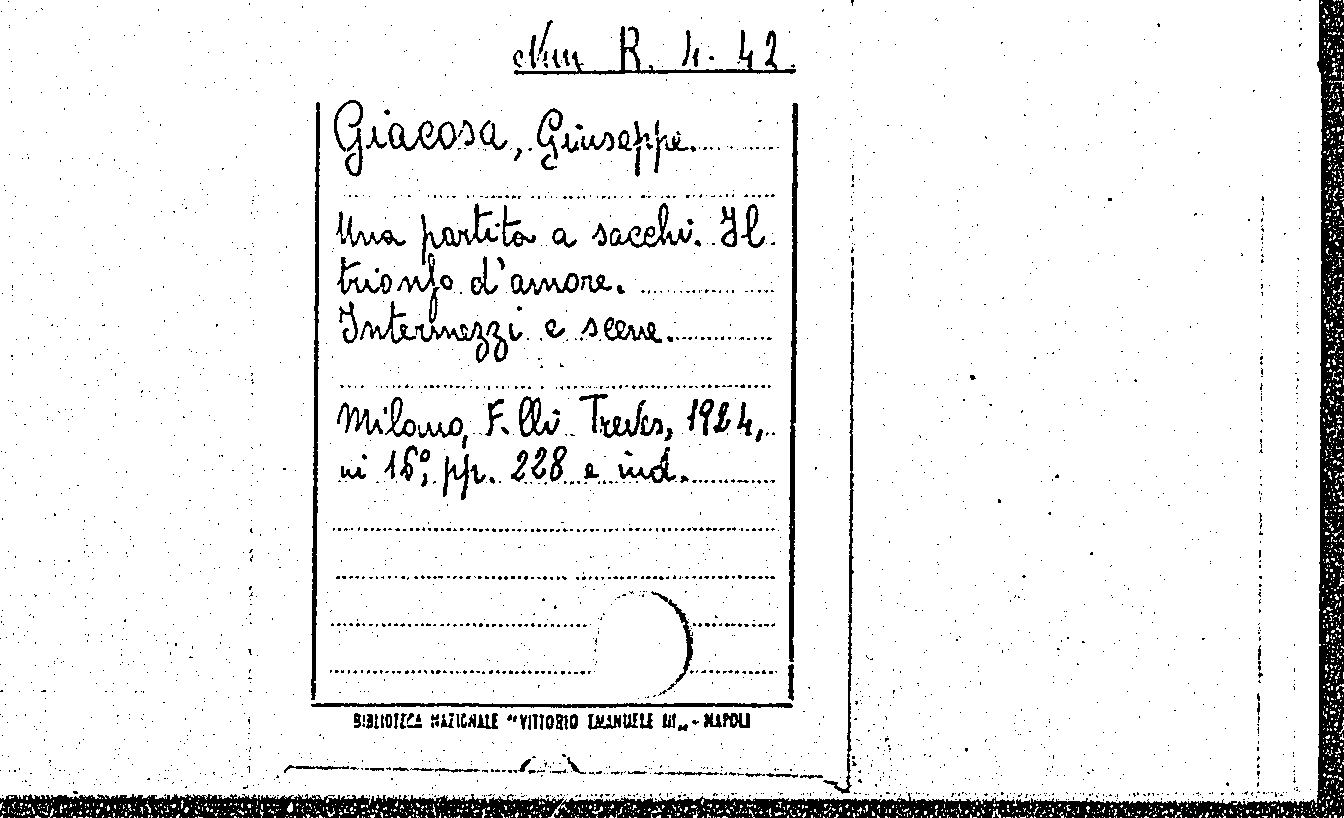 R. 4. 42.
Giacosa, Giuseppe.
Una partita a sacchi. Il
trionfo d'amore.
Intermezzi e scene.
Milano, F.lli Treves, 1924,
in 16°, pp. 228 e ind.
BIBLIOTECA NAZIONALE "VITTORIO EMANUELE III" - NAPOLI